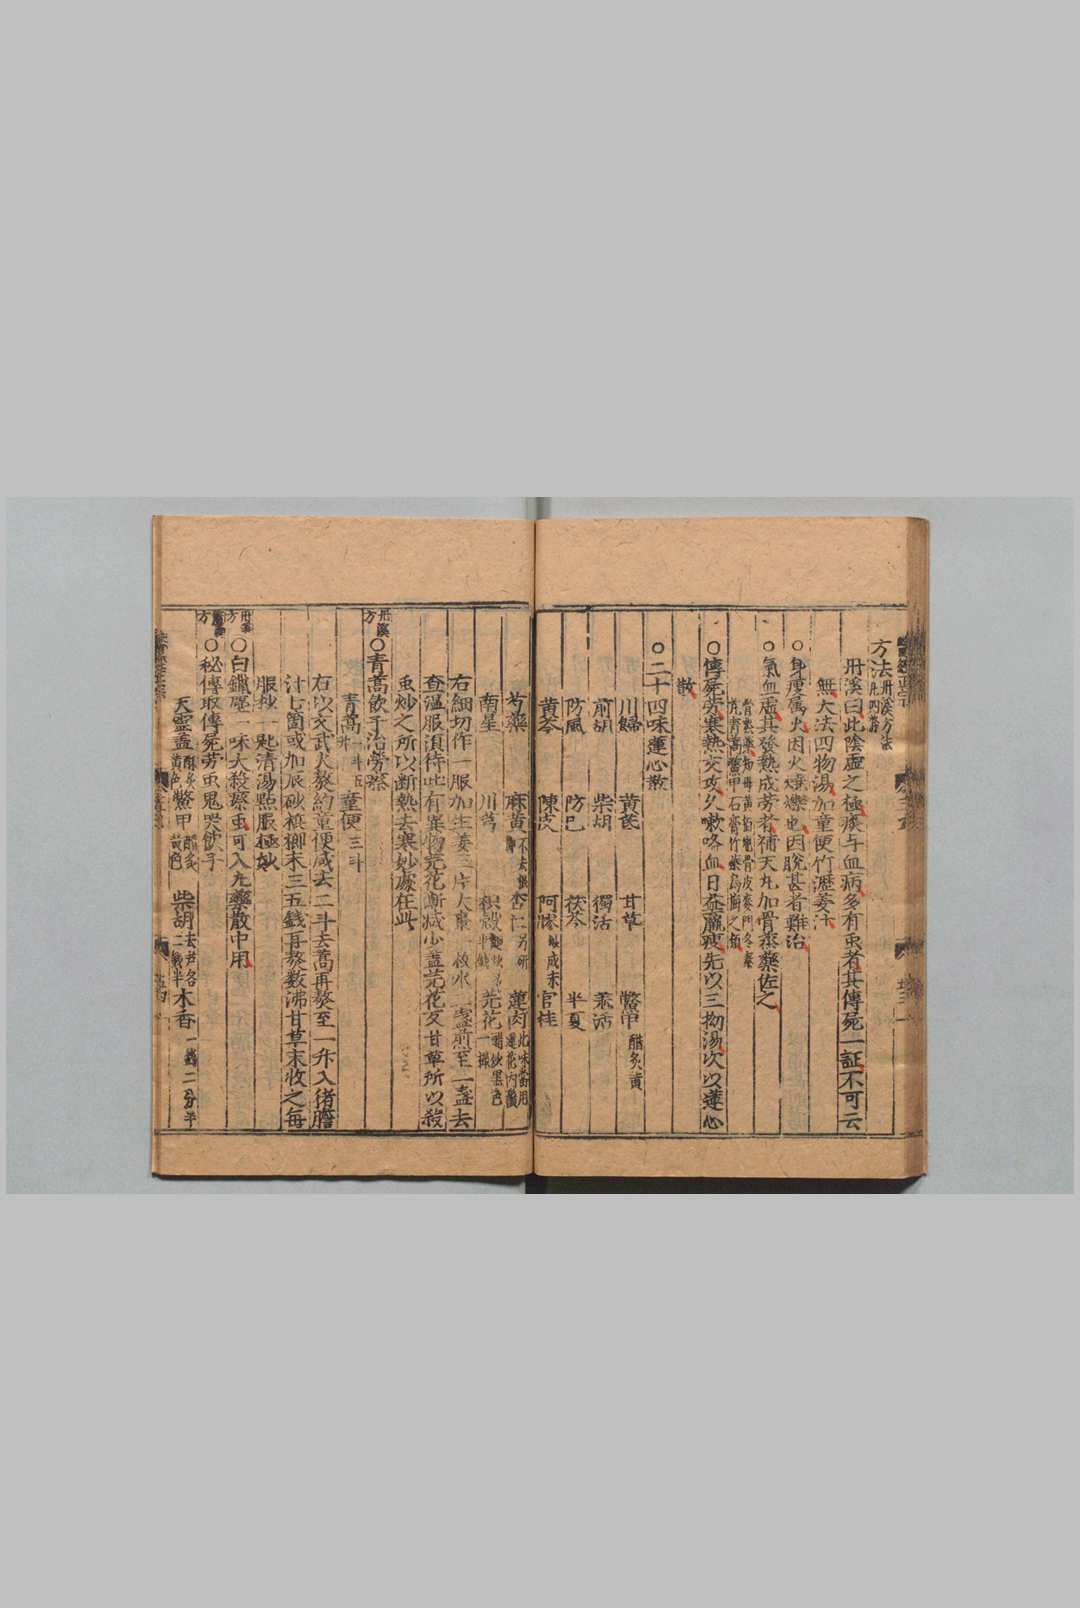 方法 丹溪方法凡四条
丹溪曰此陰虛之極痰与血病多有虫者其傳屍一証不可云
無大法四物湯加童便竹瀝姜汁
○身瘦属火因火燒爍也因脫甚者難治
○氣血虛甚發熱成勞者補天丸加骨蒸藥佐之
骨蒸藥知母黃柏地骨皮麥門冬秦
艽青蒿鱉甲石膏竹葉烏梅之類
○傳屍勞寒熱交攻久嗽咯血日益羸瘦先以三拗湯次以蓮心
散
○二十四味蓮心散
川歸 黃芪 甘草 鱉甲 醋炙黃
前胡 柴胡 獨活 羗活
防風 防巳 茯苓 半夏
黃芩 陳皮 阿膠 官桂
芍藥 麻黃 不去根節 杏仁 另研 蓮肉
南星 川芎 枳殼 芫花 醋炒黑色一撮
右細切作一服加生姜三片大棗一枚水二盞煎至一盞去
查溫服須待吐有異物芫花漸减少盖芫花反甘草所以殺
虫妙之所以断熱去寒妙處在此
丹溪方
○青蒿飲子治勞瘵
青蒿 一斗五升 童便 三斗
右以文武火熬約童便减去二斗去蒿再熬至一升入猪膽
汁七箇或加辰砂檳榔末三五錢再熬数沸甘草末收之每
服抄一匙清湯點服極妙
丹溪方
○白蠟塵一味大殺瘵虫可入九藥散中用
○秘傳取傳屍劳虫鬼哭飲子
天靈盖 酥炙黃色 鱉甲 醋炙黃色 柴胡 去芦各二錢半 木香 一錢二分半